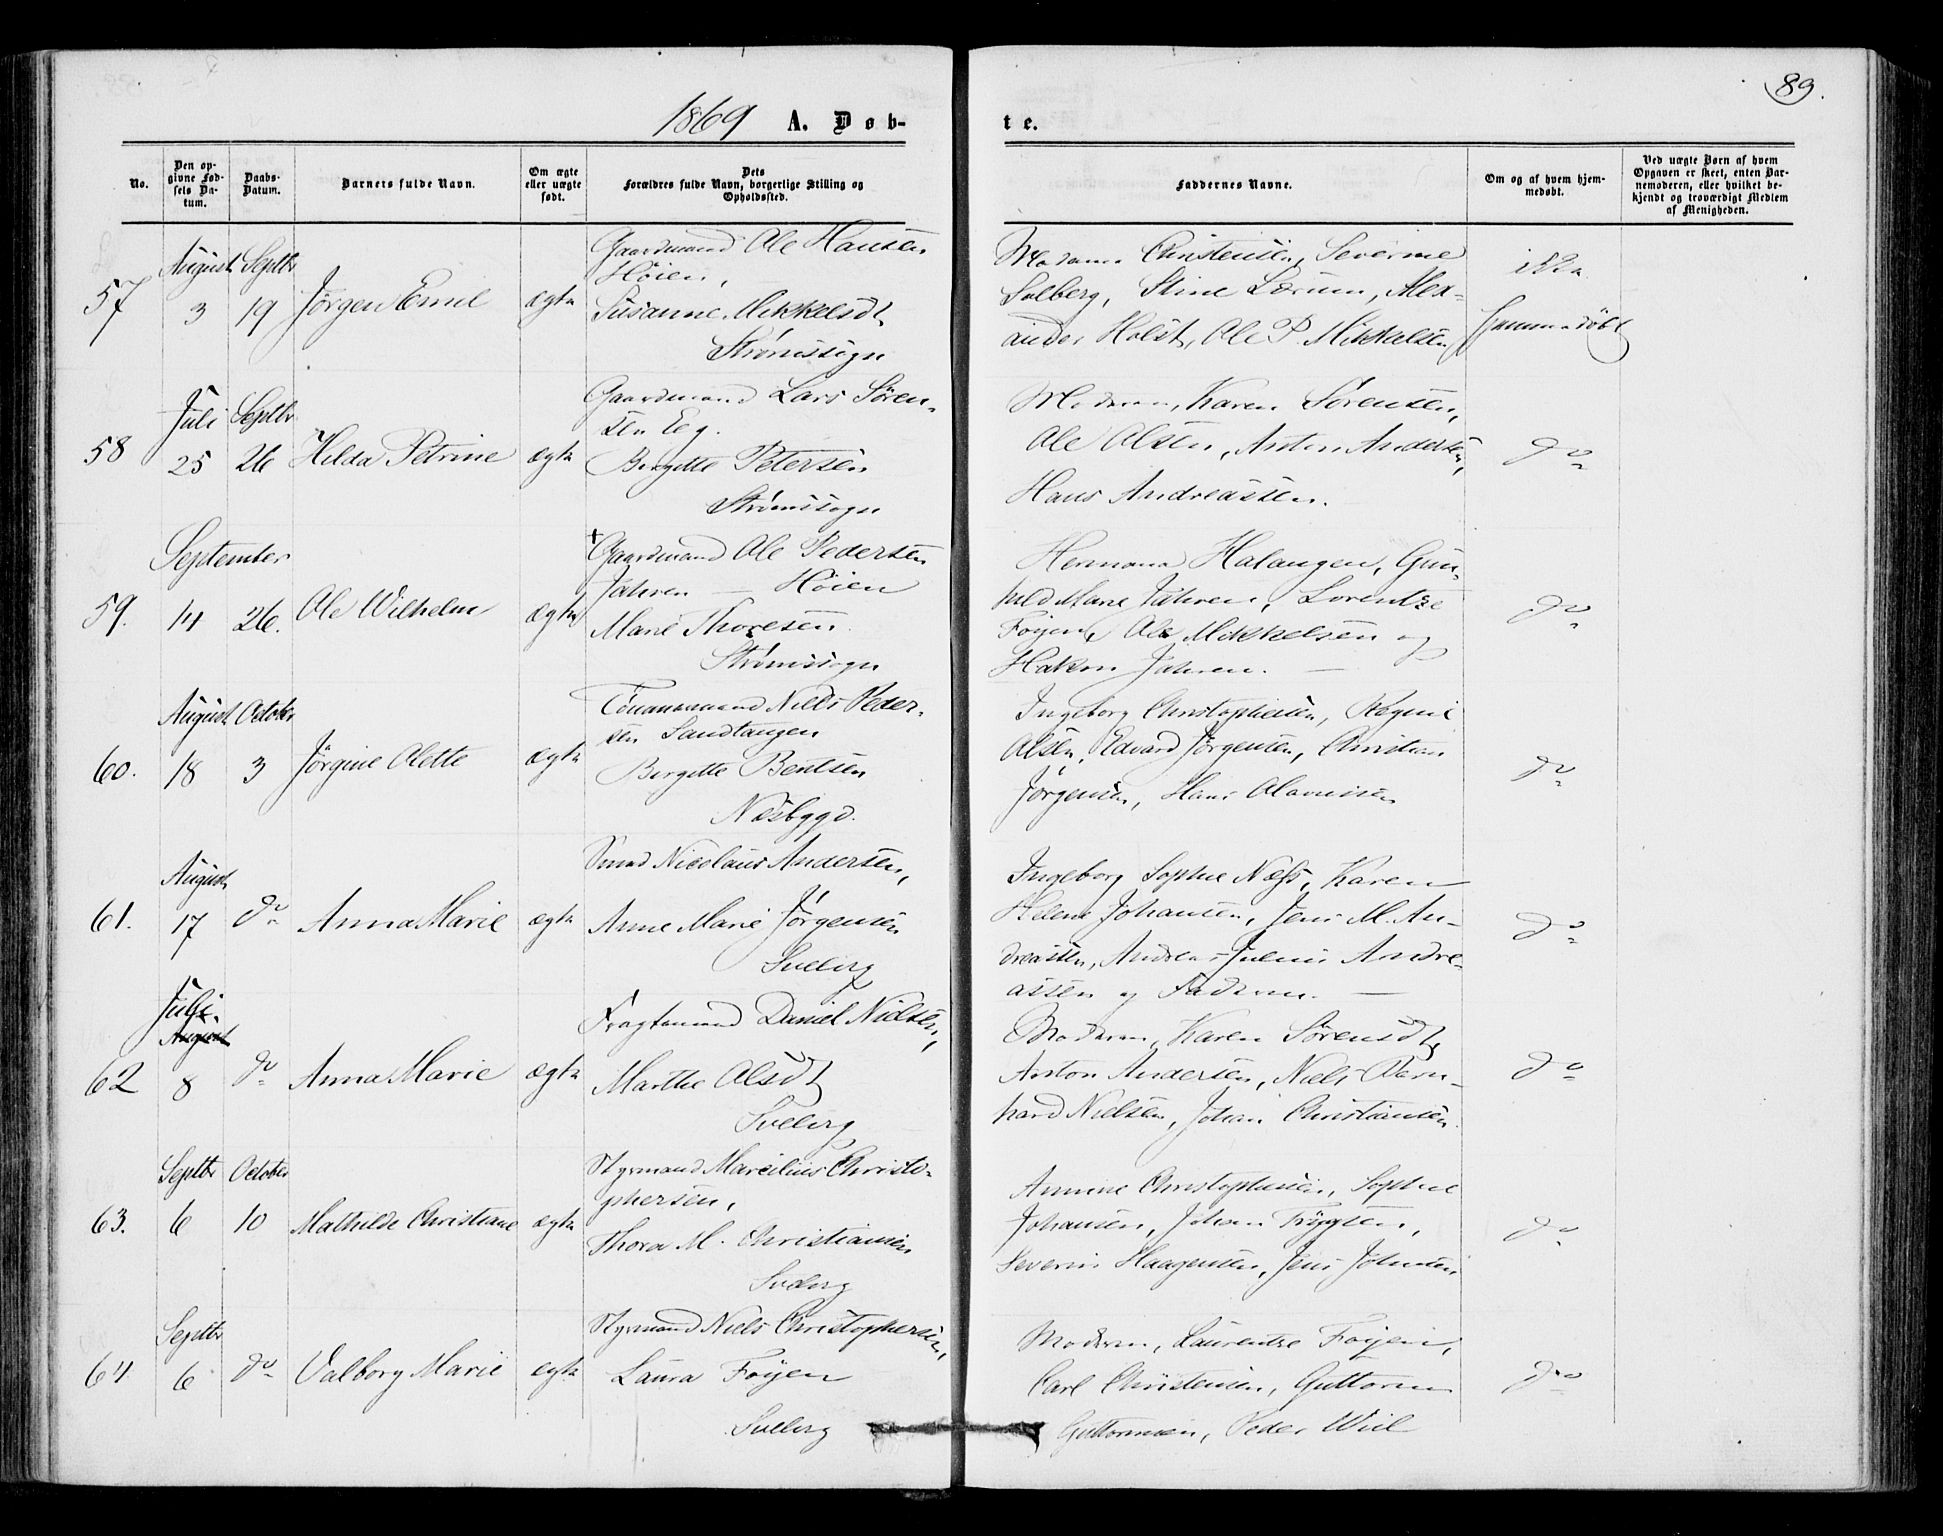 89.
1869 A. Døb-
te.
No.
Den op-
givne Fød-
sels Da-
tum.
Daabs-
Datum.
Barnets fulde Navn.
Om ægte
eller uægte
født.
Dets
Forældres fulde Navn, borgerlige Stilling og
Opholdssted.
Faddernes Navne.
Om og af hvem hjem-
medøbt.
Ved uægte Børn af hvem
Opgaven er skeet, enten Bar-
nemoderen, eller hvilket be-
kjendt og troværdigt Medlem
af Menigheden.
57
August
3
Septbr
19
Jørgen Emil
ægte
Gaardmand Ole Hansen
Høien,
Susanne Mikkelsdt
Strømssogn
Moderen Christensen, Severine
Solberg, Stine Lærum, Alex-
ander Holst, Ole P. Mikkelsen
ikke
hjemmedøbt
58
Juli
25
Septbr
26
Hilda Petrine
ægte
Gaardmand Lars Søren-
sen Eeg.
Birgitte Petersen
Strømssogn
Moderen, Karen Sørensen,
Ole Olsen, Anton Andersen,
Hans Andreassen.
do
59.
September
14
26.
Ole Wilhelm
ægte
+ Gaardmand Ole Pedersen
Jahren — Høien
Marie Thoresen.
Strømssogn
Hermana Halangen, Gun-
hild Marie Jahren, Lorentze
Føyen, Ole Mikkelsen og
Hakon Jahren. —
do
60.
August
18
October
3
Jørgine Olette
ægte
Niels Peder-
sen Sandtangen
Birgitte Bentsen
Næsbygd.
Ingeborg Christophersen, Regine
Olsen, Edvard Jørgensen, Christian
Jørgensen, Hans Olavesen
do
61.
August
17
do
Anna Marie
ægte
Smed Nicolaus Andersen,
Anne Marie Jørgensen
Svelvig
Ingeborg Sophie Næss, Karen
Helene Johansen, Jens M. An-
dreassen, Andreas Julius Andre-
assen og Faderen. —
do
62
Juli.
August
8
do
Anna Marie
ægte
Fragtemand Daniel Nielsen,
Marthe Olsdt
Svelvig
Moderen, Karen Sørensdt,
Anton Andersen, Niels Bern-
hard Nielsen, Johan Christiansen.
do
63.
Septbr
6
October
10
Mathilde Christiane
ægte
Styrmand Marcilius Christo-
phersen,
Thora M. Christiansen
Svelvig
Annine Christophersen, Sophie
Johansen, Johan Trygsen,
Severin Haagensen, Jens Johnsen.
do
64
Septbr
6
do
Valborg Marie
ægte
Styrmand Niels Christophersen,
Laura Føyen
Svelvig
Moderen, Laurentze Føyen,
Carl Christensen, Guttorm
Guttormsen, Peder Wiel
do